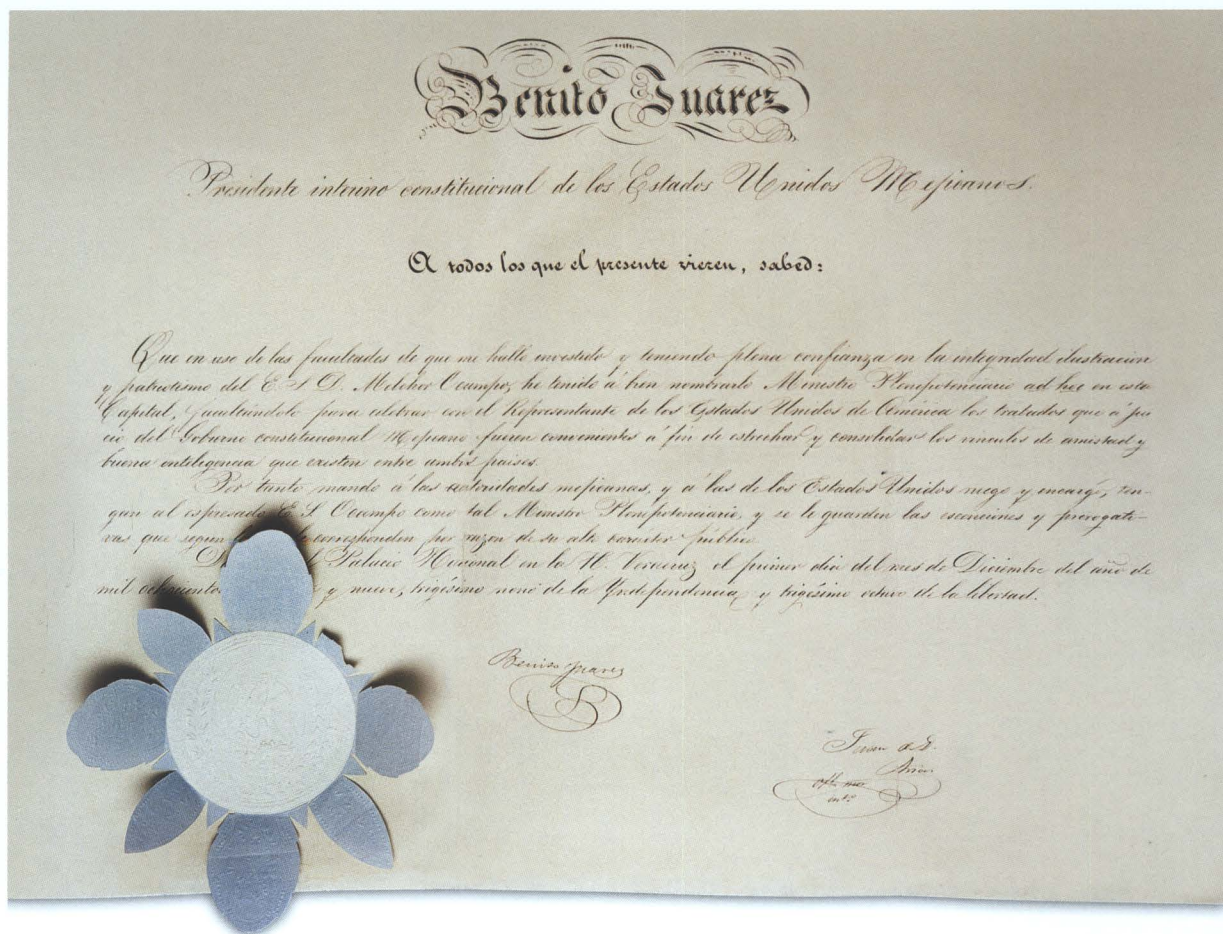 Benito Juarez
Presidente interino constitucional de los Estados Unidos Mejicanos.
A todos los que el presente vieren, sabed:
Que en uso de las facultades de que me hallo investido y teniendo plena confianza en la integridad ilustracion
y patriotismo del E. S. D. Melchor Ocampo, he tenido á bien nombrarlo Ministro Plenipotenciario ad hoc en esta
Capital, facultándolo para celebrar con el Representante de los Estados Unidos de América los tratados que á jui
cio del Gobierno constitucional Mejicano fueren convenientes á fin de estrechar y consolidar los vínculos de amistad y
buena inteligencia que existen entre ambos paises.
Por tanto mando á las autoridades mejicanas, y á las de los Estados Unidos ruego y encargo, ten-
gan al espresado E. S. Ocampo como tal Ministro Plenipotenciario, y se le guarden las escenciones y prerogati-
vas que segun le corresponden por razon de su alto caracter público.
Palacio Nacional en la H. Veracruz el primer dia del mes de Diciembre del año de
mil ochocientos y nueve, trigésimo nono de la Independencia y trigésimo octavo de la libertad.
Benito Juarez
Juan de D.
Arias
ofl. mor